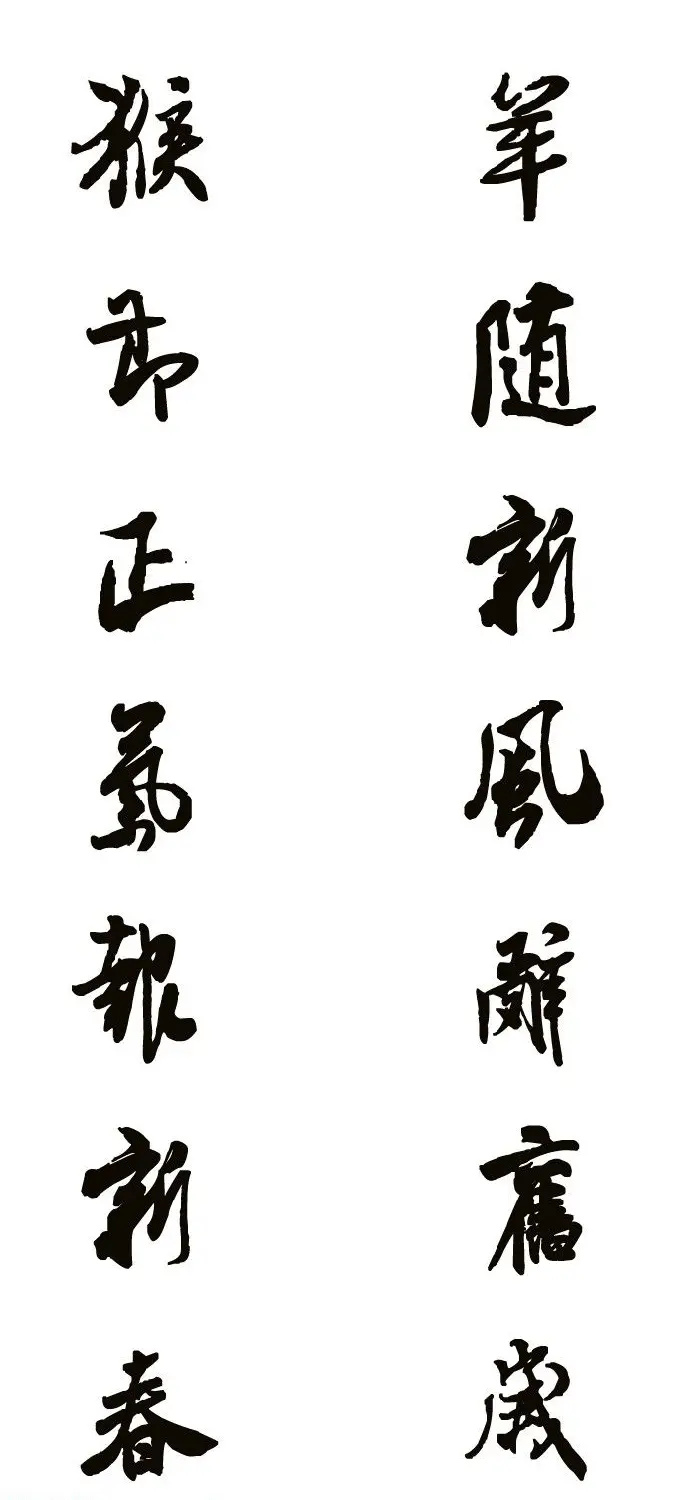 羊随新風辭舊歲
猴節正氣報新春